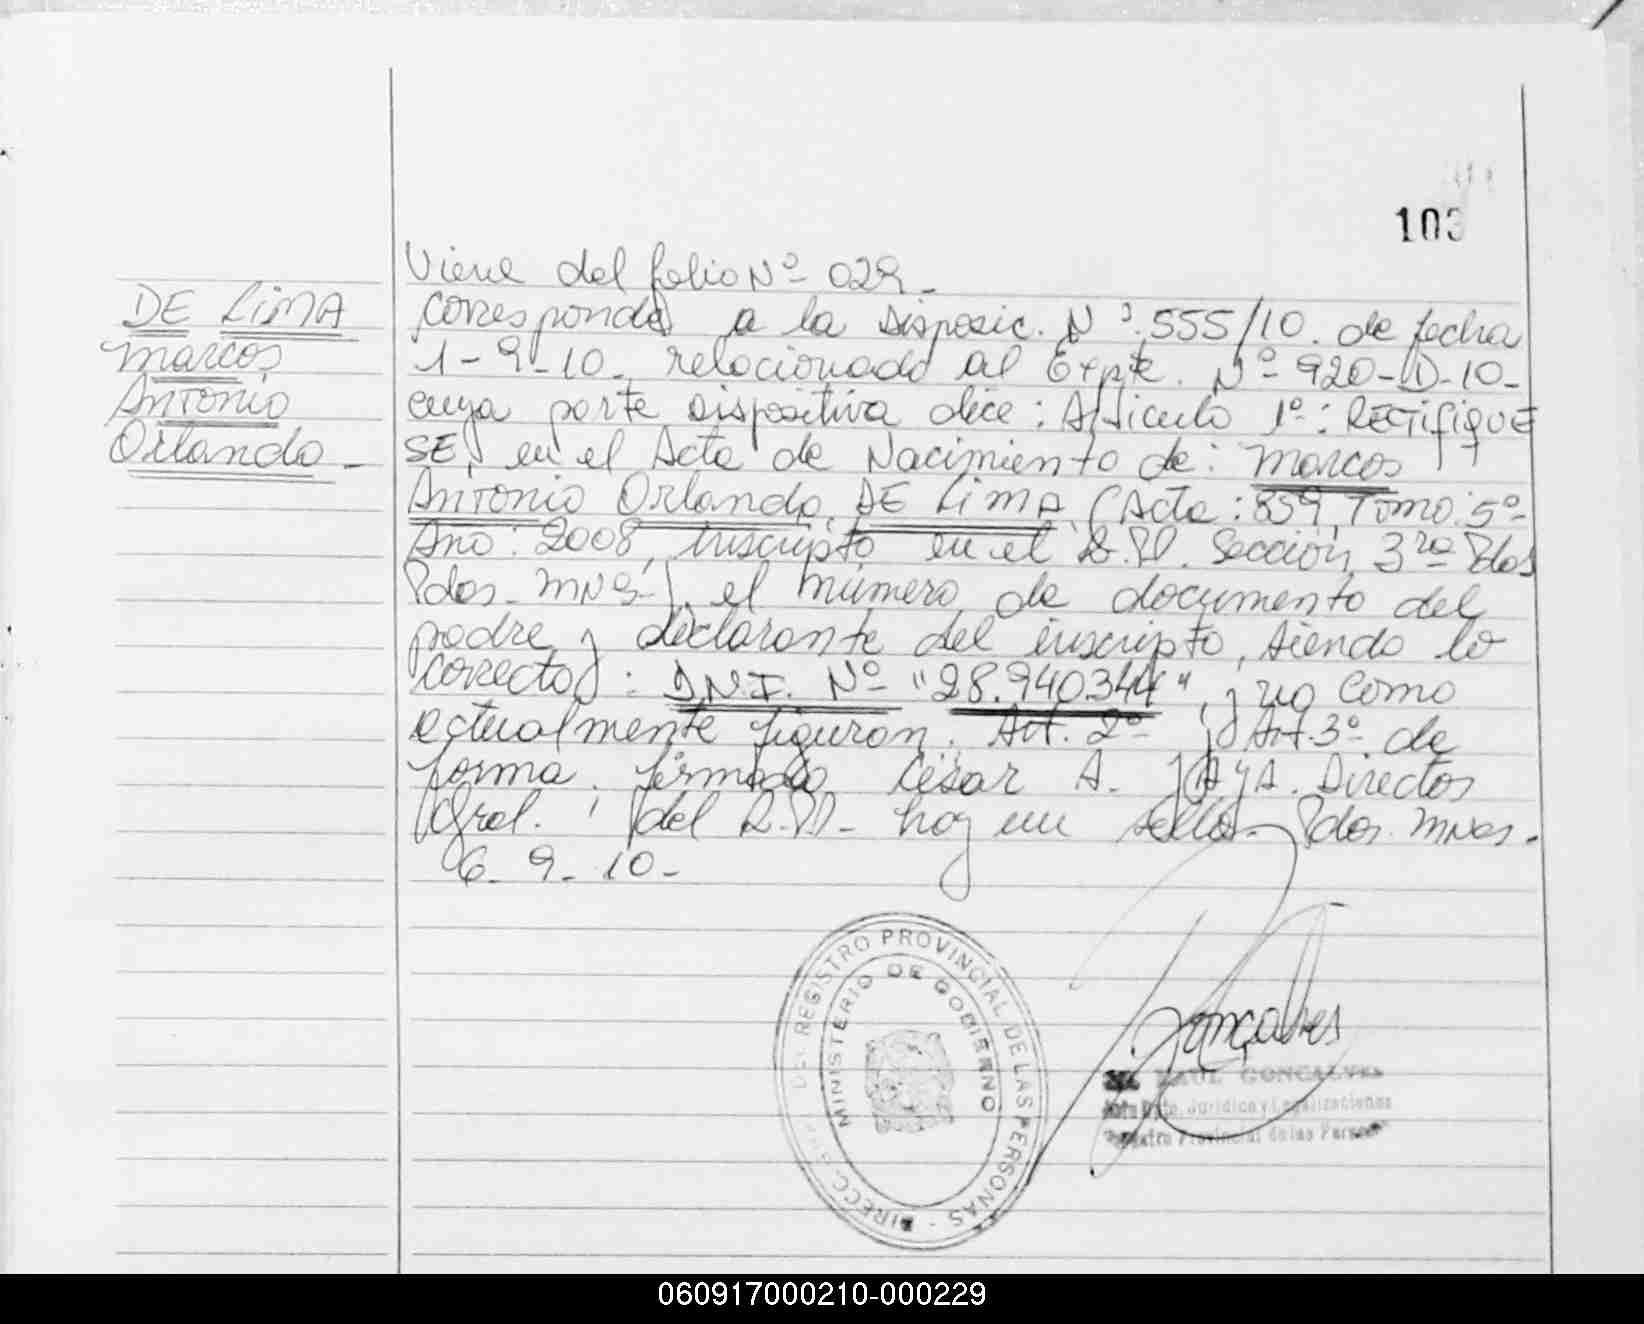 103
Viene del folio Nº 029.-
DE LIMA
Marcos
Antonio
Orlando -
corresponde a la Disposic. Nº 555/10. de fecha
1-9-10_ relacionado al Expte. Nº 920-D-10-
cuya parte dispositiva dice: Articulo 1º: RECTIFIQUE
SE, en el Acta de Nacimiento de: Marcos
Antonio Orlando, DE LIMA, (Acta: 859, Tomo: 5º-
Año: 2008, inscripto en el R.P. Sección 3ra Pdas
Pdas. MNS-), el número de documento del
padre y declarante del inscripto, siendo lo
correcto: D.N.I. Nº "28.940.344", y no como
actualmente figuran. Art. 2º y Art. 3º de
forma. firmado Cesar A. JAYA. Director
Gral. del R.P.- hay un sello. Pdas. MNes.
6-9-10-
DIRECC. DEL REGISTRO PROVINCIAL DE LAS PERSONAS -
MINISTERIO DE GOBIERNO
Gonçalves
RAUL GONCALVES
Dpto. Jurídico y Legalizaciones
Registro Provincial de las Personas
060917000210-000229